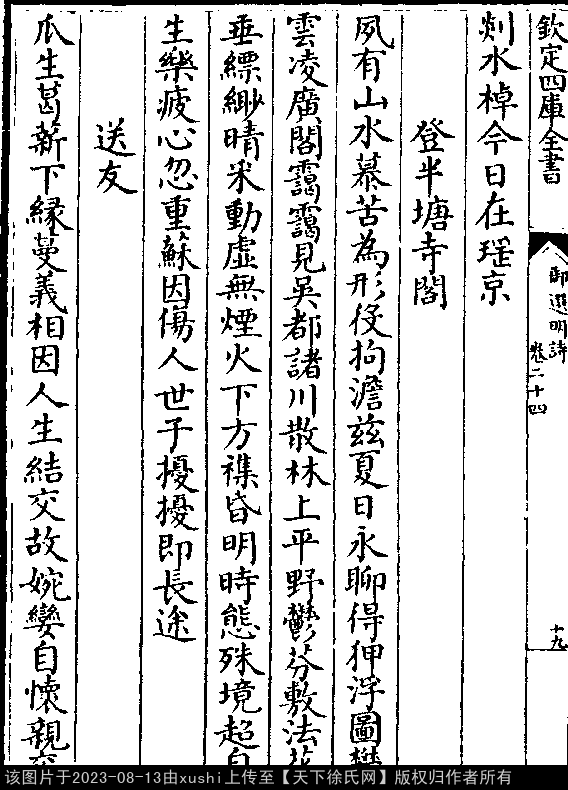 欽定四庫全書
御選明詩
卷二十四
十九
剡水棹今日在瑶京
登半塘寺閣
夙有山水慕苦為形役拘澹兹夏日永聊得狎浮圖攀
雲凌廣閣靄靄見吳都諸川散林上平野鬱芬敷法花
垂縹緲晴采動虛無煙火下方襍昏明時態殊境超自
生樂疲心忽重蘇因傷人世子擾擾即長途
送友
瓜生葛薪下縁蔓義相因人生結交故婉孌自懷親交
该图片于2023-08-13由xushi上传至【天下徐氏网】版权归作者所有